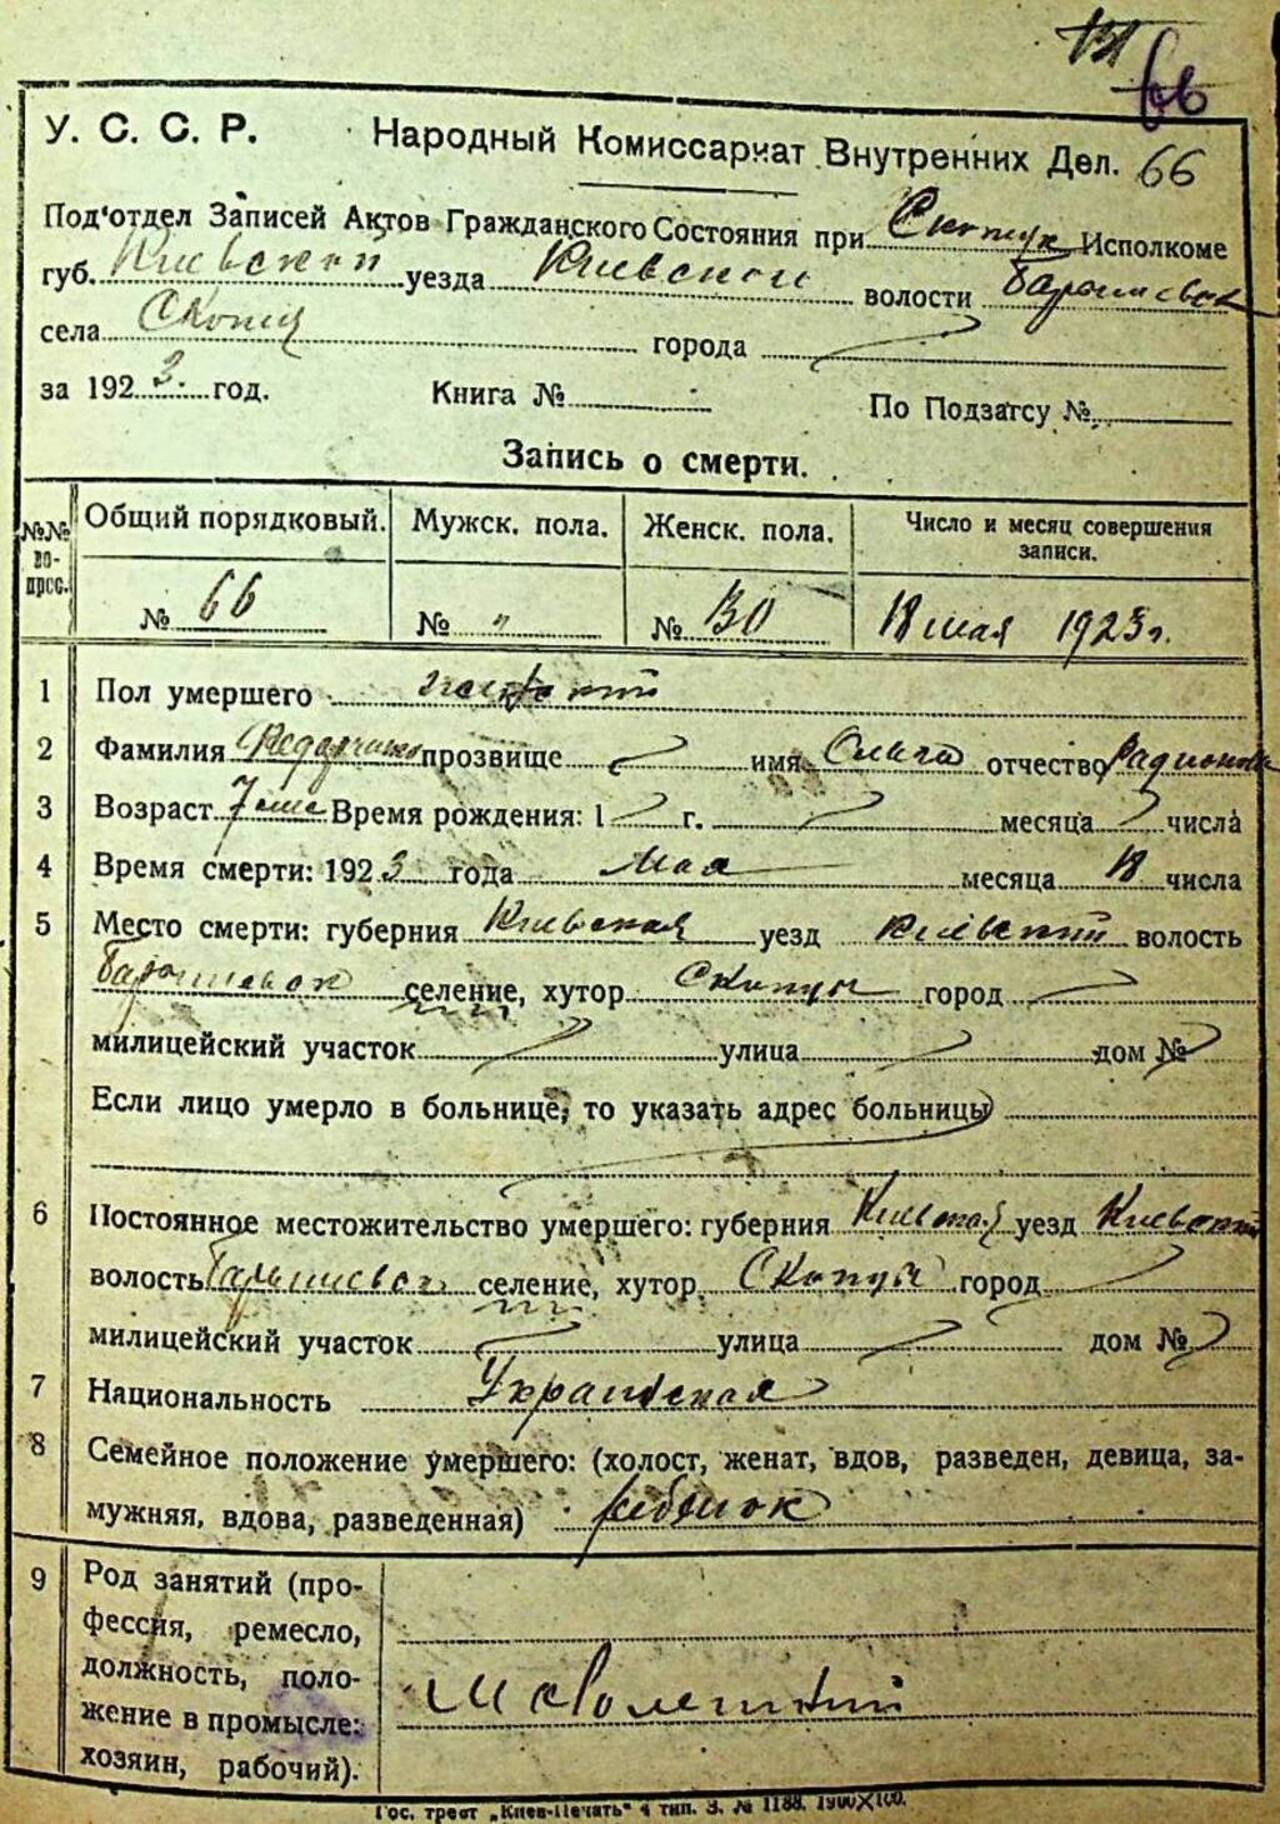 66
У. С. С. Р. Народный Комиссариат Внутренних Дел. 66
Под'отдел Записей Актов Гражданского Состояния при Исполкоме
губ. Киевской уезда Киевской волости
села Скопцы города
за 1923. год. Книга № По Подзагсу №
Запись о смерти.
№№ во- прос. Общий порядковый. Мужск. пола. Женск. пола. Число и месяц совершения записи.
№ 66 № „ № 30 18 мая 1923 г.
1 Пол умершего женский
2 Фамилия прозвище имя Ольга отчество Радионова
3 Возраст 7 Время рождения: 1 г. месяца числа
4 Время смерти: 1923 года Мая месяца 18 числа
5 Место смерти: губерния Киевская уезд Киевский волость
селение, хутор Скопцы город
милицейский участок улица дом №
Если лицо умерло в больнице, то указать адрес больницы
6 Постоянное местожительство умершего: губерния Киевская уезд Киевский
волость селение, хутор Скопцы город
милицейский участок улица дом №
7 Национальность Украинская
8 Семейное положение умершего: (холост, женат, вдов, разведен, девица, за-
мужняя, вдова, разведенная) ребенок
9 Род занятий (про-
фессия, ремесло,
должность, поло-
жение в промысле:
хозяин, рабочий).
малолетний
Гос. трест „Киев-Печать" 4 тип. З. № 1188. 1900×100.